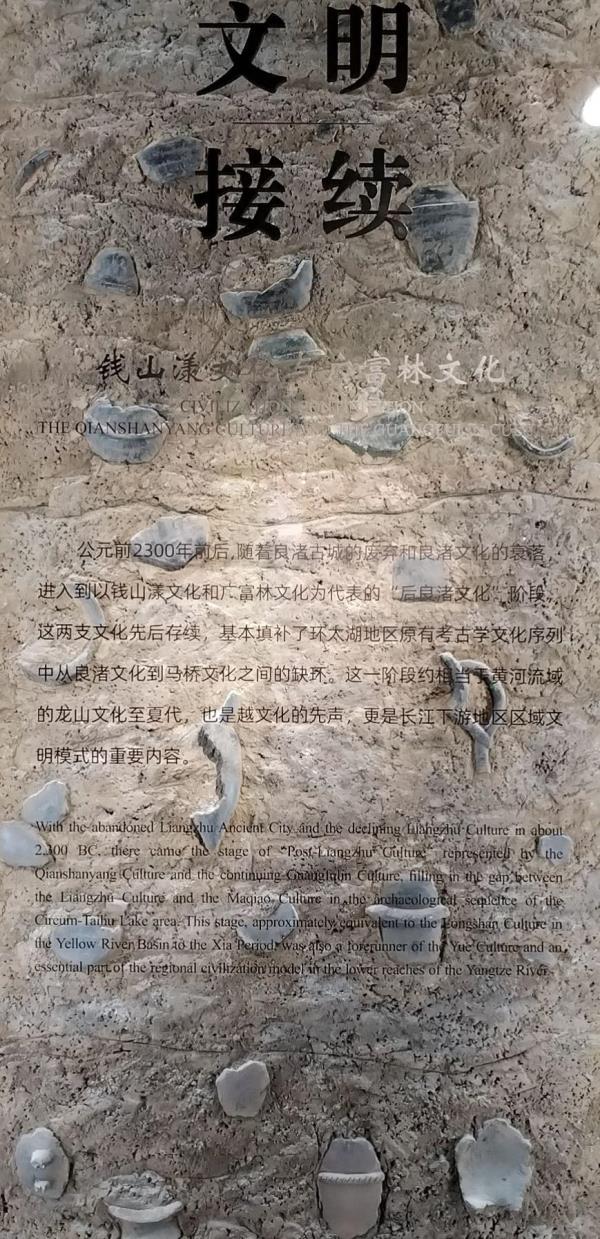 文明
接续
钱山漾文 富林文化
CIVILIZATION
THE QIANSHANYANG CULTURE THE GUANGFULIN
公元前2300年前后,随着良渚古城的废弃和良渚文化的衰落,
进入到以钱山漾文化和广富林文化为代表的“后良渚文化”阶段。
这两支文化先后存续，基本填补了环太湖地区原有考古学文化序列
中从良渚文化到马桥文化之间的缺环。这一阶段约相当于黄河流域
的龙山文化至夏代，也是越文化的先声，更是长江下游地区区域文
明模式的重要内容。
With the abandoned Liangzhu Ancient City and the declining Liangzhu Culture in about
2,300 BC, there came the stage of "Post-Liangzhu Culture" represented by the
Qianshanyang Culture and the continuing Guangfulin Culture, filling in the gap between
the Liangzhu Culture and the Maqiao Culture in the archaeological sequence of the
Circum-Taihu Lake area. This stage, approximately equivalent to the Longshan Culture in
the Yellow River Basin to the Xia Period, was also a forerunner of the Yue Culture and an
essential part of the regional civilization model in the lower reaches of the Yangtze River.